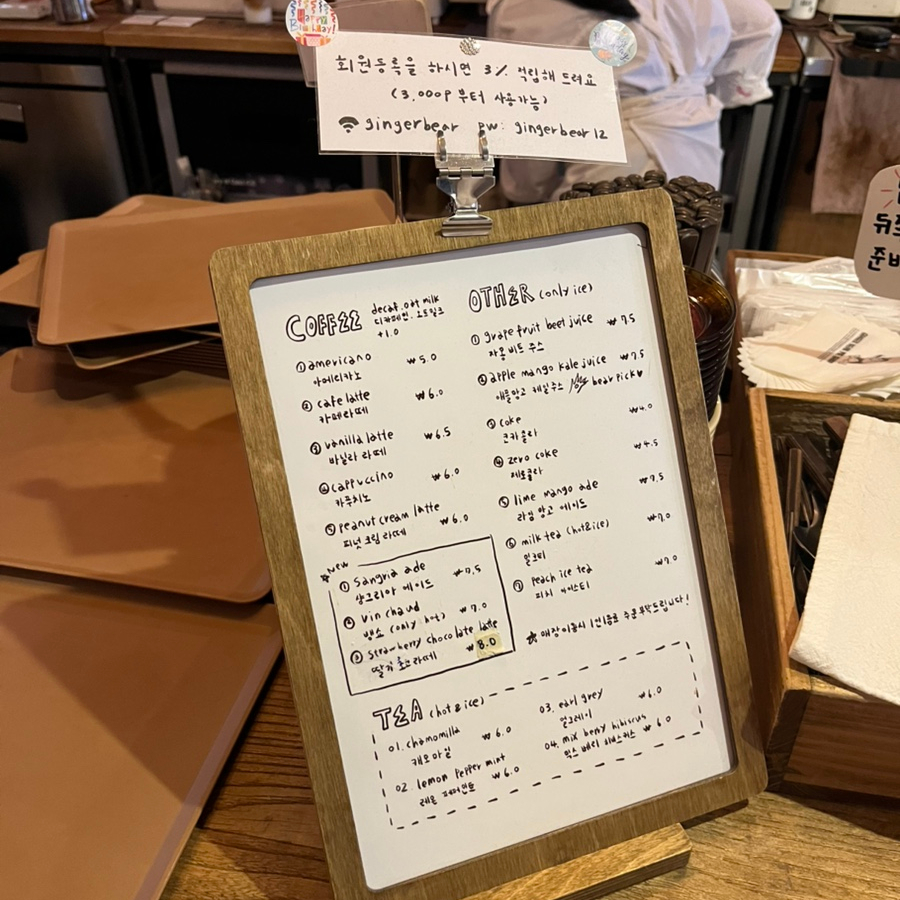 Happy
Birthday!
회원등록을 하시면 3% 적립해 드려요
(3,000P 부터 사용가능)
gingerbear pw: gingerbear12
COFFEE
decaf. oat milk
디카페인. 오트밀크
+1.0
① americano ₩5.0
아메리카노
② cafe latte ₩6.0
카페라떼
③ vanilla latte ₩6.5
바닐라 라떼
④ cappuccino ₩6.0
카푸치노
⑤ peanut cream latte
피넛 크림 라떼 ₩6.0
★new
① Sangria ade ₩7.5
샹그리아 에이드
② Vin chaud ₩7.0
뱅쇼 (only hot)
③ strawberry chocolate latte
딸기 초코라떼 ₩8.0
OTHER (only ice)
① grape fruit beet juice ₩7.5
자몽 비트 주스
② apple mango kale juice ₩7.5
애플망고 케일주스 bear pick♥
③ coke ₩4.0
코카콜라
④ zero coke ₩4.5
제로콜라
⑤ lime mango ade ₩7.5
라임 망고 에이드
⑥ milk tea (hot&ice) ₩7.0
밀크티
⑦ peach ice tea ₩7.0
피치 아이스티
★ 매장이용시 1인1음료 주문부탁드립니다!
TEA (hot & ice)
01. chamomilla ₩6.0
캐모마일
02. lemon pepper mint
레몬 페퍼민트 ₩6.0
03. earl grey ₩6.0
얼그레이
04. mix berry hibiscus ₩6.0
믹스 베리 히비스커스
준비